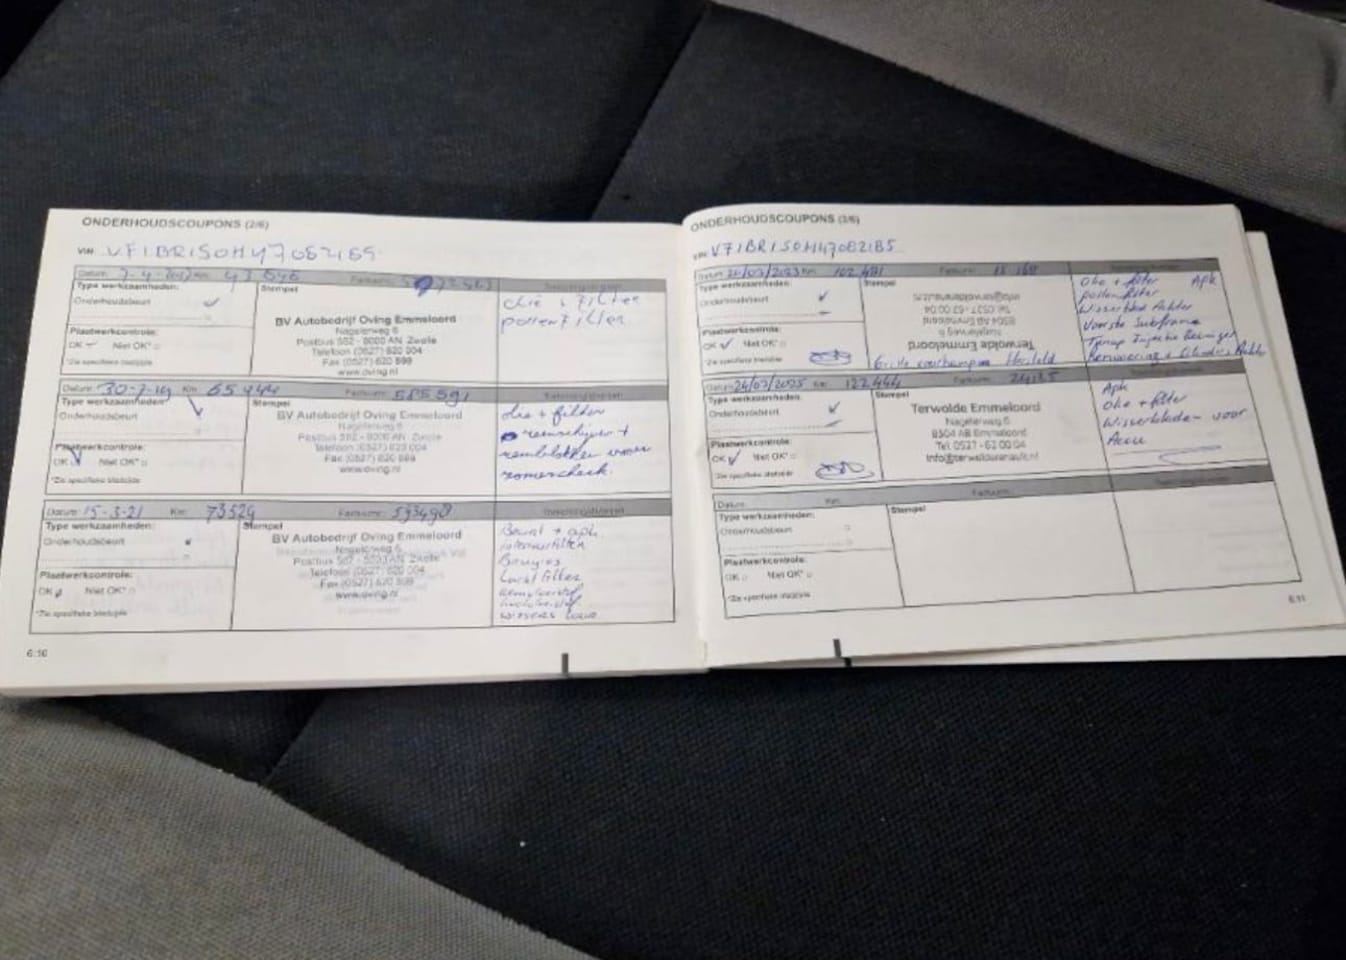 ONDERHOUDSCOUPONS (2/6)
VIN:
Datum: Km: Factuurnr:
Type werkzaamheden:
Onderhoudsbeurt
Plaatwerkcontrole:
OK Niet OK*
*Zie specifieke bladzijde
Stempel
BV Autobedrijf Oving Emmeloord
Nagelerweg 6
Postbus 562 - 8000 AN Zwolle
Telefoon (0527) 620 004
Fax (0527) 620 899
www.oving.nl
olie + Filter
pollenfilter
Datum: 30-7-19 Km: 65 444 Factuurnr:
Type werkzaamheden:
Onderhoudsbeurt
Plaatwerkcontrole:
OK Niet OK*
*Zie specifieke bladzijde
Stempel
BV Autobedrijf Oving Emmeloord
Nagelerweg 6
Postbus 562 - 8000 AN Zwolle
Telefoon (0527) 620 004
Fax (0527) 620 899
www.oving.nl
olie + filter
remschijven +
remblokken voor
zomercheck.
Datum: 15-3-21 Km: 73524 Factuurnr: 593498
Type werkzaamheden:
Onderhoudsbeurt
Plaatwerkcontrole:
OK Niet OK*
*Zie specifieke bladzijde
Stempel
BV Autobedrijf Oving Emmeloord
Nagelerweg 6
Postbus 562 - 8000 AN Zwolle
Telefoon (0527) 620 004
Fax (0527) 620 899
www.oving.nl
Beurt + apk.
interieurfilter
Bougies
Luchtfilter
remvloeistof
koelvloeistof
wissers
6.10
ONDERHOUDSCOUPONS (3/6)
VIN:
Datum: Km: Factuurnr:
Type werkzaamheden:
Onderhoudsbeurt
Plaatwerkcontrole:
OK Niet OK*
*Zie specifieke bladzijde
Stempel
Terwolde Emmeloord
Nagelerweg 6
8304 AB Emmeloord
Tel. 0527 - 62 00 04
Olie + filter Apk
pollenfilter
Wisserblad Achter
Voorste Subframe
Injectie Reiniger
Remvoering + Cilinders Achter
Datum: 24/07/2025 Km: 122.444 Factuurnr:
Type werkzaamheden:
Onderhoudsbeurt
Plaatwerkcontrole:
OK Niet OK*
*Zie specifieke bladzijde
Stempel
Terwolde Emmeloord
Nagelerweg 6
8304 AB Emmeloord
Tel. 0527 - 62 00 04
info@terwolderenault.nl
Apk
Olie + filter
Wisserbladen voor
Accu
Datum: Km: Factuurnr:
Type werkzaamheden:
Onderhoudsbeurt
Plaatwerkcontrole:
OK Niet OK*
*Zie specifieke bladzijde
Stempel
6.11